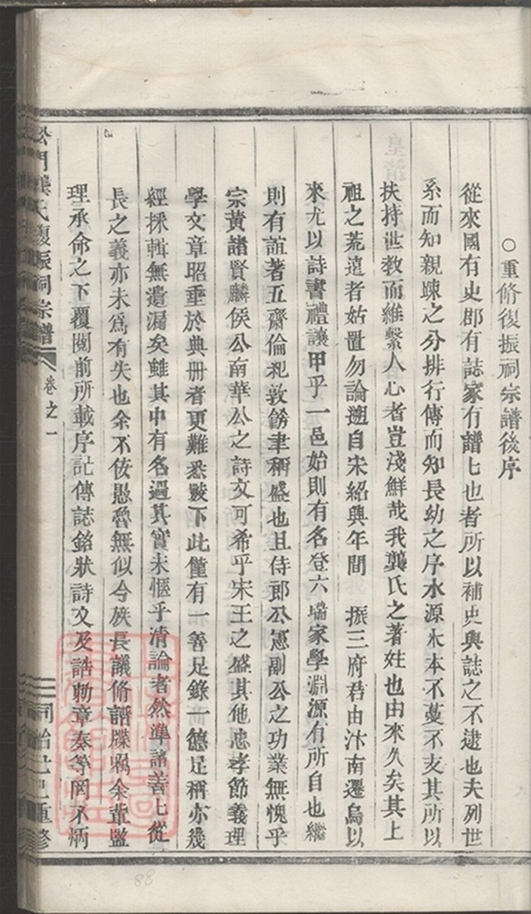 ○重修復振祠宗譜後序
從來國有史郡有誌家有譜譜也者所以補史與誌之不逮也夫列世
系而知親踈之分排行傳而知長幼之序水源木本不蔓不支其所以
扶持世教而維繫人心者豈淺鮮哉我龔氏之著姓也由來久矣其上
祖之荒遠者姑置勿論遡自宋紹興年間 振三府君由汴南遷烏以
來尤以詩書禮讓甲乎一邑始則有名登六墖家學淵源有所自也繼
則有誼著五齋倫紀敦飭聿稱盛也且侍郎公憲副公之功業無愧乎
宗黃諸賢麟侯公南華公之詩文可希乎宋王之盛其他忠孝節義理
學文章昭垂於典冊者更難悉數下此僅有一善足錄一德足稱亦幾
經採輯無遺漏矣雖其中有名過其實未愜乎清論者然準諸善善從
長之義亦未為有失也余不佞愚魯無似今族長議脩譜牒囑余董監
理承命之下覆閱前所載序記傳誌銘狀詩文及誥勅章奏等罔不炳
龔氏復振祠宗譜
卷之一
同治己巳重修
88